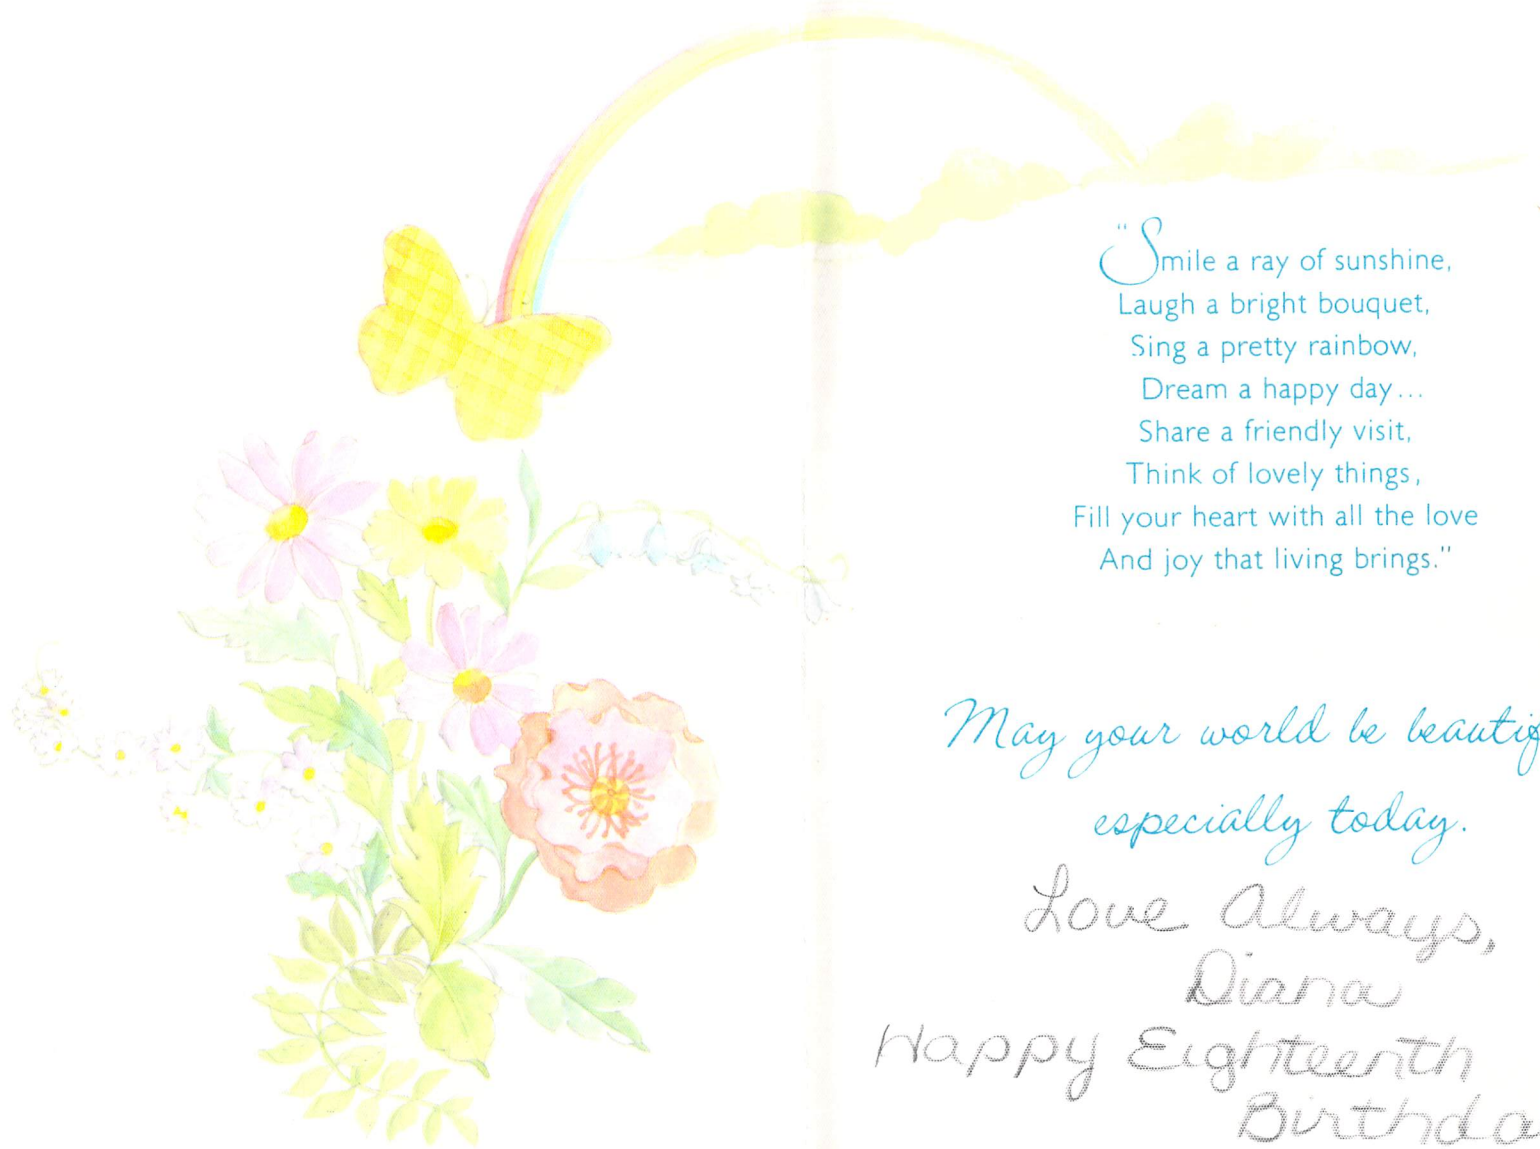 "Smile a ray of sunshine,
Laugh a bright bouquet,
Sing a pretty rainbow,
Dream a happy day...
Share a friendly visit,
Think of lovely things,
Fill your heart with all the love
And joy that living brings."
May your world be beautif
especially today.
Love Always,
Diana
Happy Eighteenth
Birthda